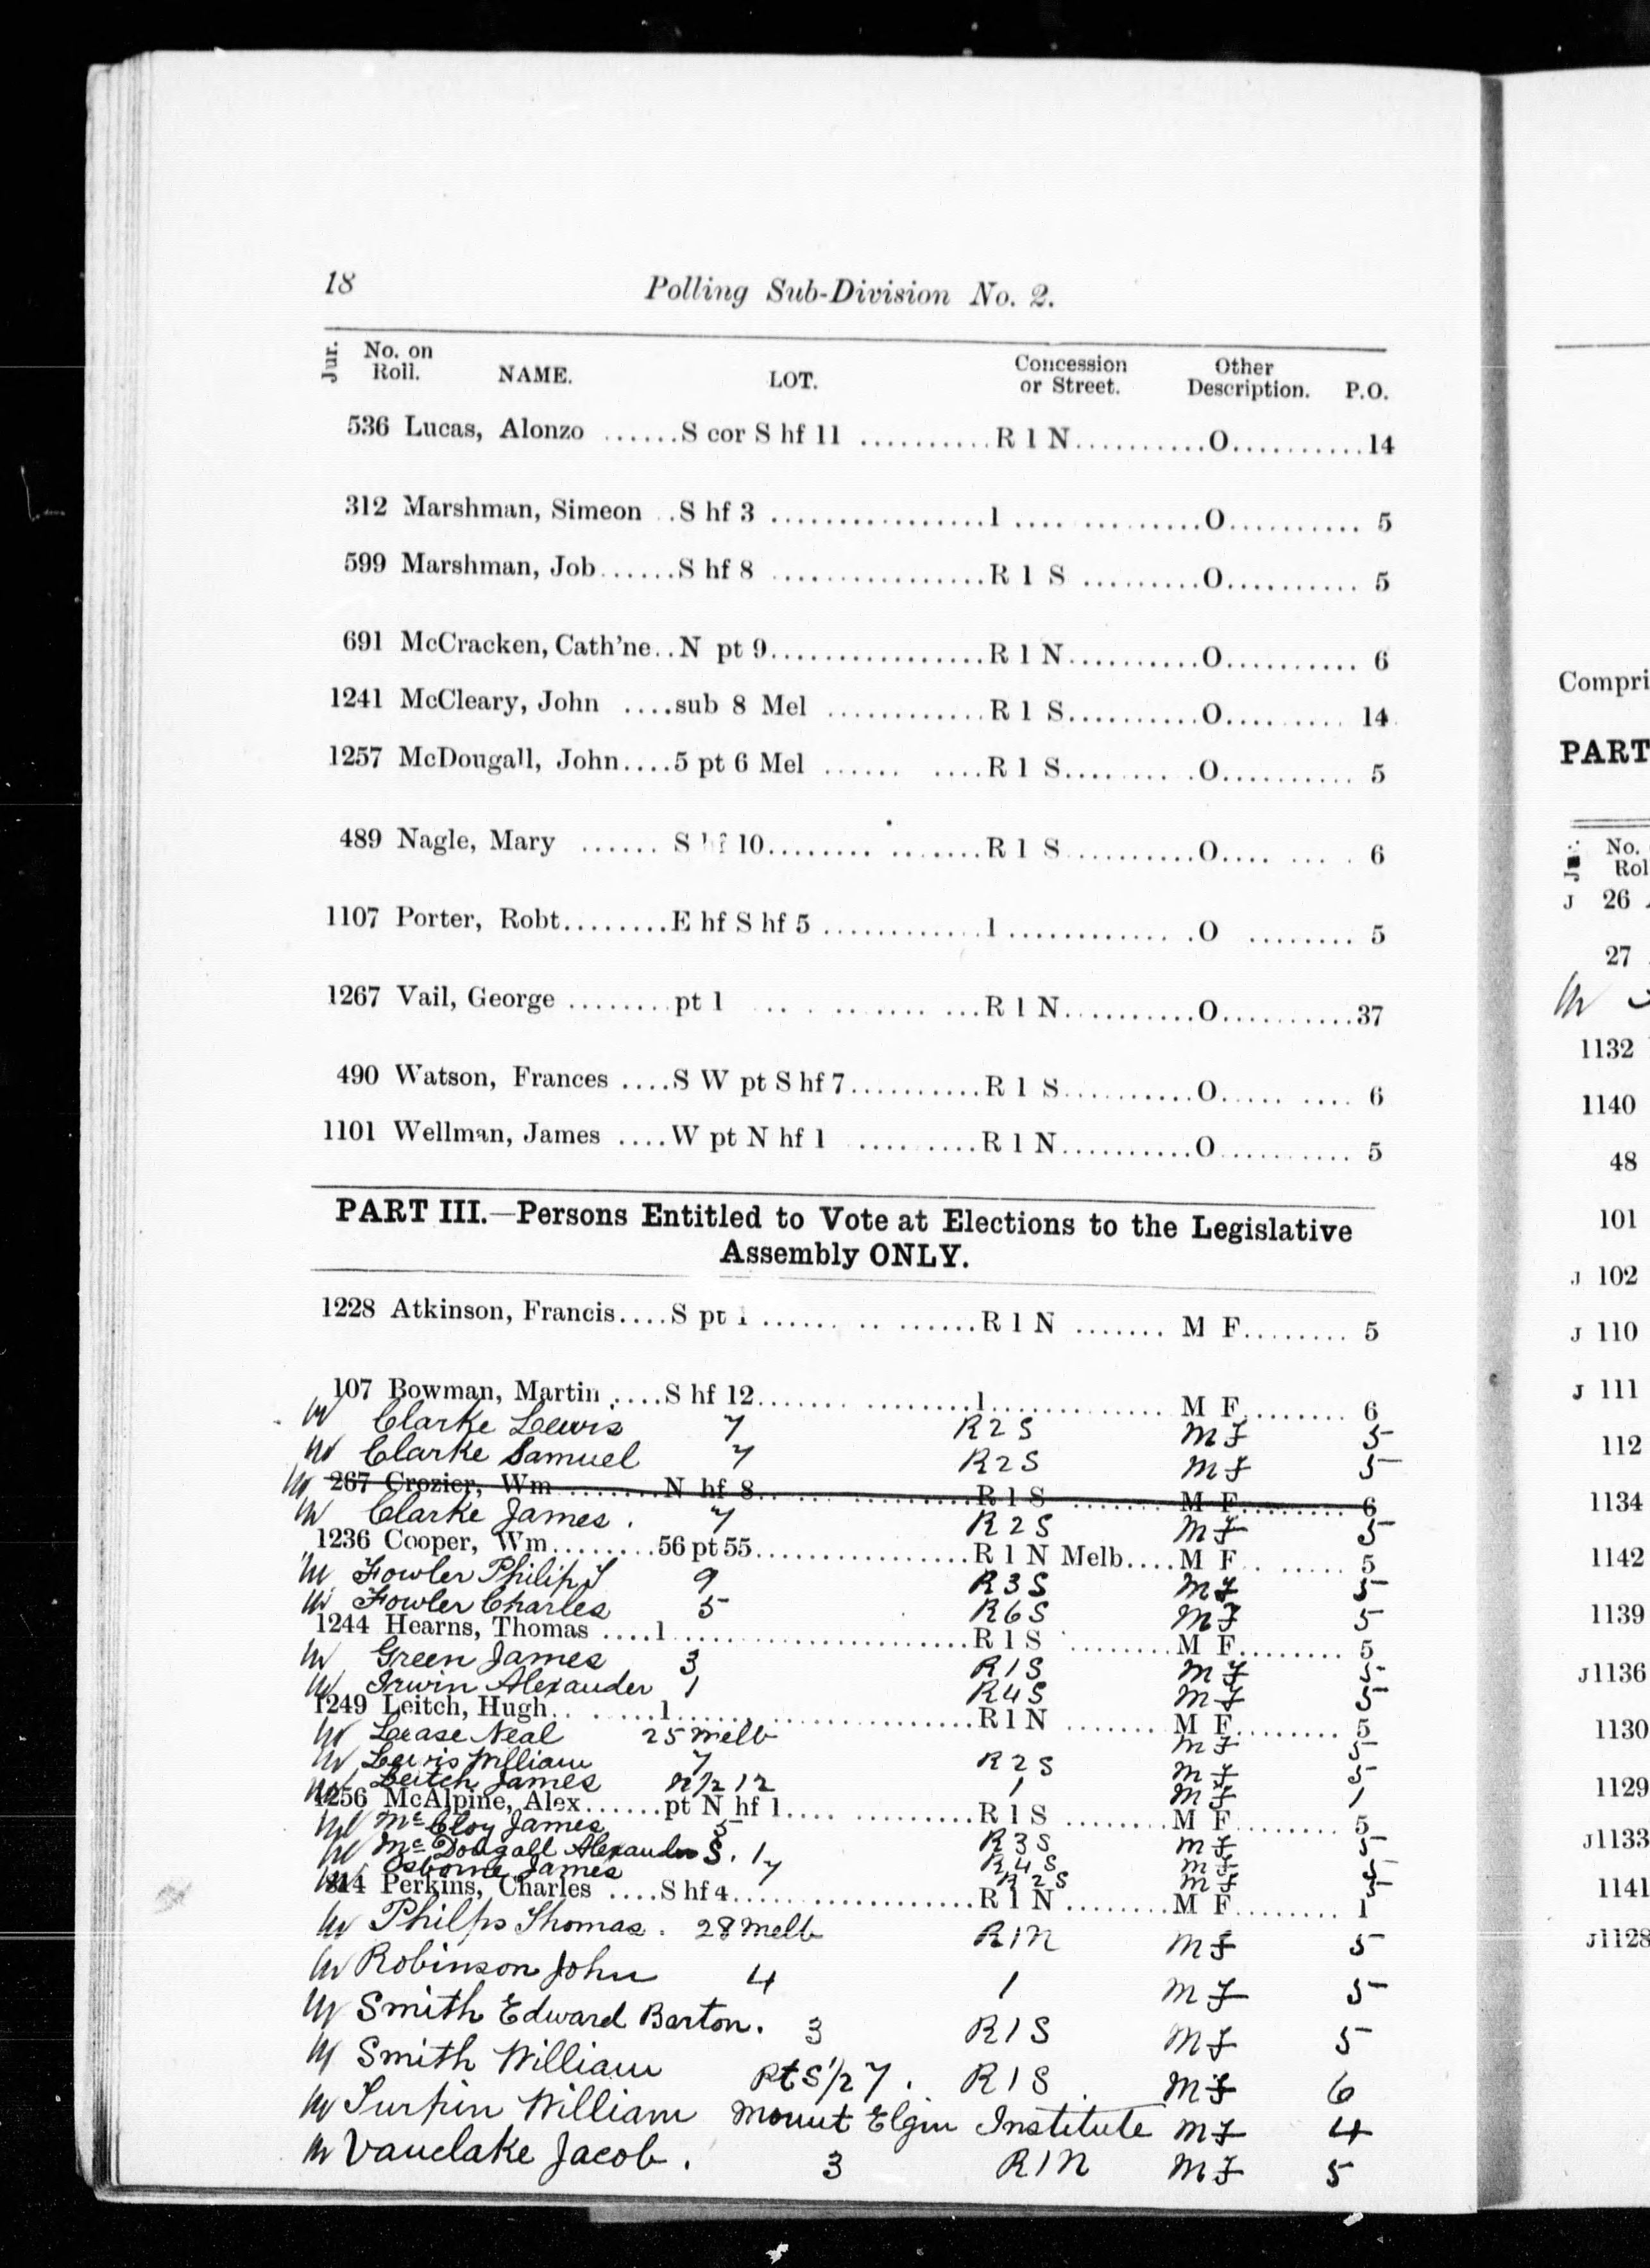 18 Polling Sub-Division No. 2.
Jur. No. on Roll. NAME. LOT. Concession or Street. Other Description. P.O.
536 Lucas, Alonzo ......S cor S hf 11 ..........R 1 N..........O..........14
312 Marshman, Simeon ..S hf 3 ................1 .... .........O.......... 5
599 Marshman, Job......S hf 8 ................R 1 S .........O.......... 5
691 McCracken, Cath'ne..N pt 9................R 1 N..........O.......... 6
1241 McCleary, John ....sub 8 Mel ............R 1 S..........O......... 14
1257 McDougall, John....5 pt 6 Mel ...... ....R 1 S..........O.......... 5
489 Nagle, Mary ...... S hf 10........ .......R 1 S..........O.... .... 6
1107 Porter, Robt........E hf S hf 5 ............1 ............. .O ........ 5
1267 Vail, George ........pt 1 .. . ....... ...R 1 N..........O..........37
490 Watson, Frances ....S W pt S hf 7..........R 1 S..........O..... .... 6
1101 Wellman, James ....W pt N hf 1 .........R 1 N..........O.......... 5
PART III.—Persons Entitled to Vote at Elections to the Legislative
Assembly ONLY.
1228 Atkinson, Francis....S pt 1 ...... .. ......R 1 N ....... M F........ 5
107 Bowman, Martin ....S hf 12................1............. M F........ 6
Clarke Lewis 7 R 2 S M F 5
Clarke Samuel 7 R 2 S M F 5
267 Crozier, Wm........N hf 8................R 1 S ...... M F..........6
Clarke James . 7 R 2 S M F 5
1236 Cooper, Wm........56 pt 55................R 1 N Melb....M F.. ..... 5
Fowler Philip 9 R 3 S M F 5
Fowler Charles 5 R 6 S M F 5
1244 Hearns, Thomas ....1......................R 1 S ........M F........ 5
Green James 3 R 1 S M F 5
Irwin Alexander 1 R 4 S M F 5
1249 Leitch, Hugh.. ......1......................R 1 N ........M F........ 5
Lease Neal 25 Melb M F 5
Lewis William 7 R 2 S M F 5
Leitch James N 1/2 12 1 M F 1
1256 McAlpine, Alex......pt N hf 1.... .........R 1 S ........M F........ 5
McCloy James 5 R 3 S M F 5
McDougall Alexander S. 1 R 4 S M F 5
Osborne James 7 R 2 S M F 5
814 Perkins, Charles ....S hf 4..................R 1 N........M F........ 1
Philps Thomas . 28 Melb R 1 N M F 5
Robinson John 4 1 M F 5
Smith Edward Barton. 3 R 1 S M F 5
Smith William Pt S 1/2 7 . R 1 S . M F 6
Turpin William Mount Elgin Institute M F 4
Vanclake Jacob . 3 R 1 N M F 5
Compri
PART
No.
Rol
J 26
27
1132
1140
48
101
J 102
J 110
J 111
112
1134
1142
1139
J1136
1130
1129
J1133
1141
J1128